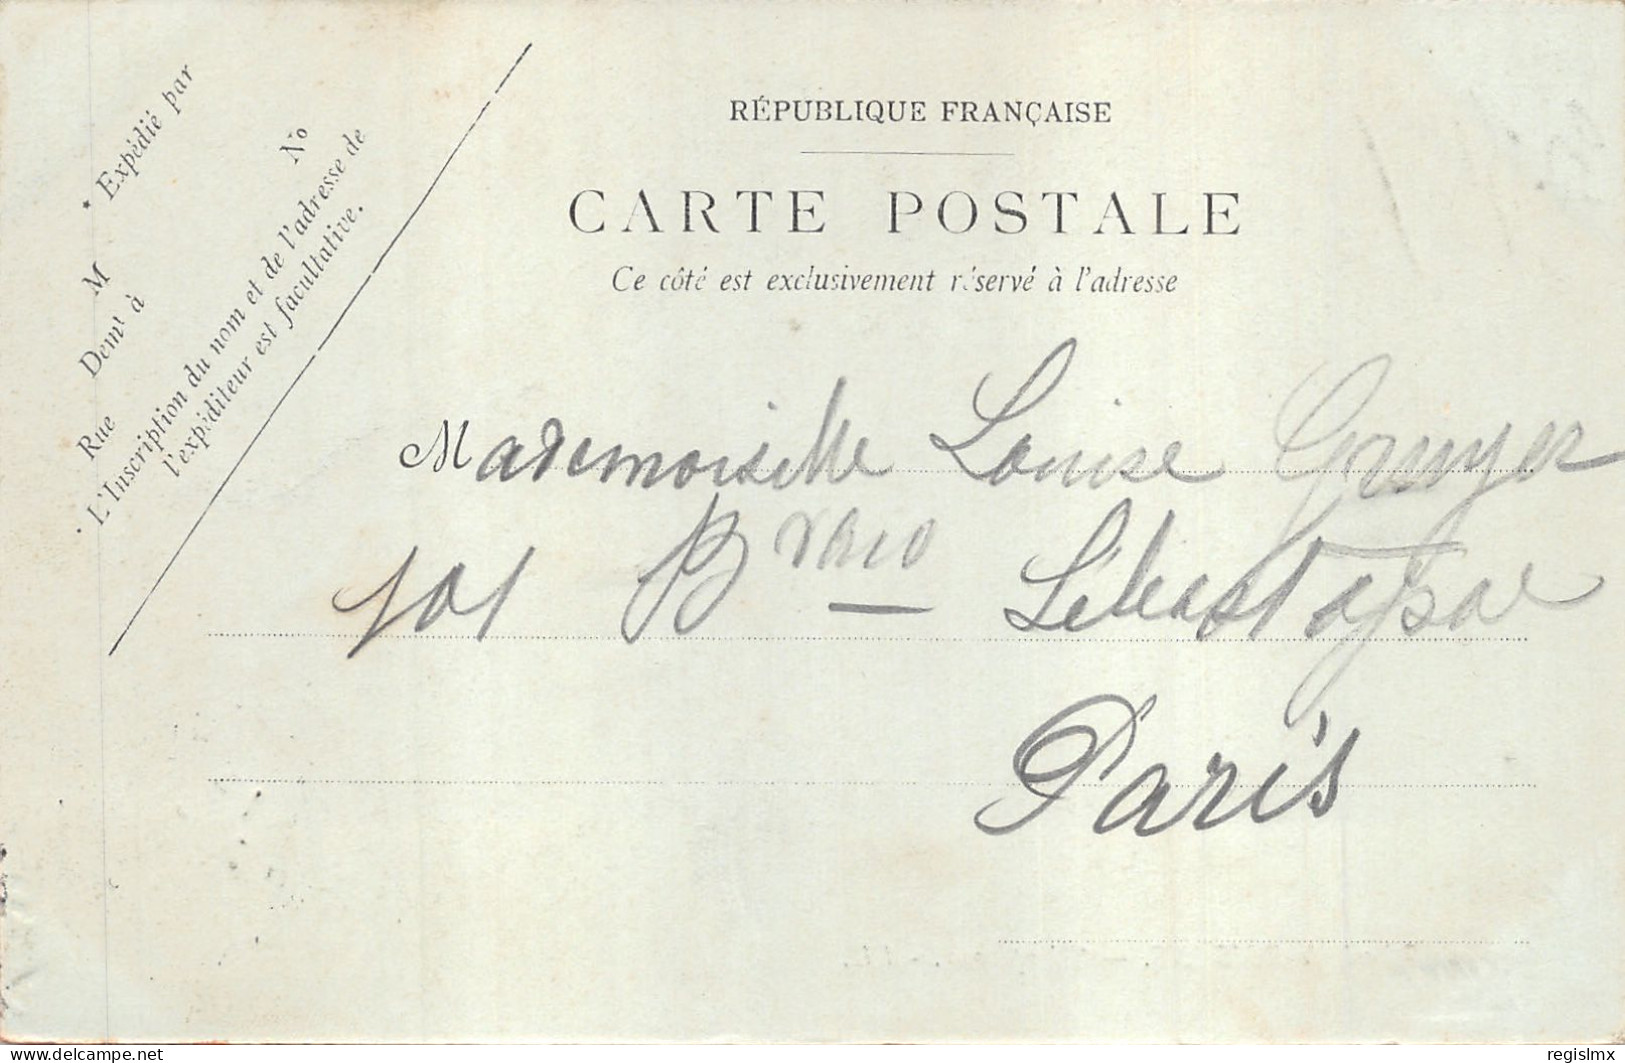 RÉPUBLIQUE FRANÇAISE
CARTE POSTALE
Ce côté est exclusivement réservé à l'adresse
* Expédié par
M
Demt à
Rue
No
* L'Inscription du nom et de l'adresse de
l'expéditeur est facultative.
Mademoiselle Louise Gruyer
101 Bvard Sébastopol
Paris
www.delcampe.net
regislmx